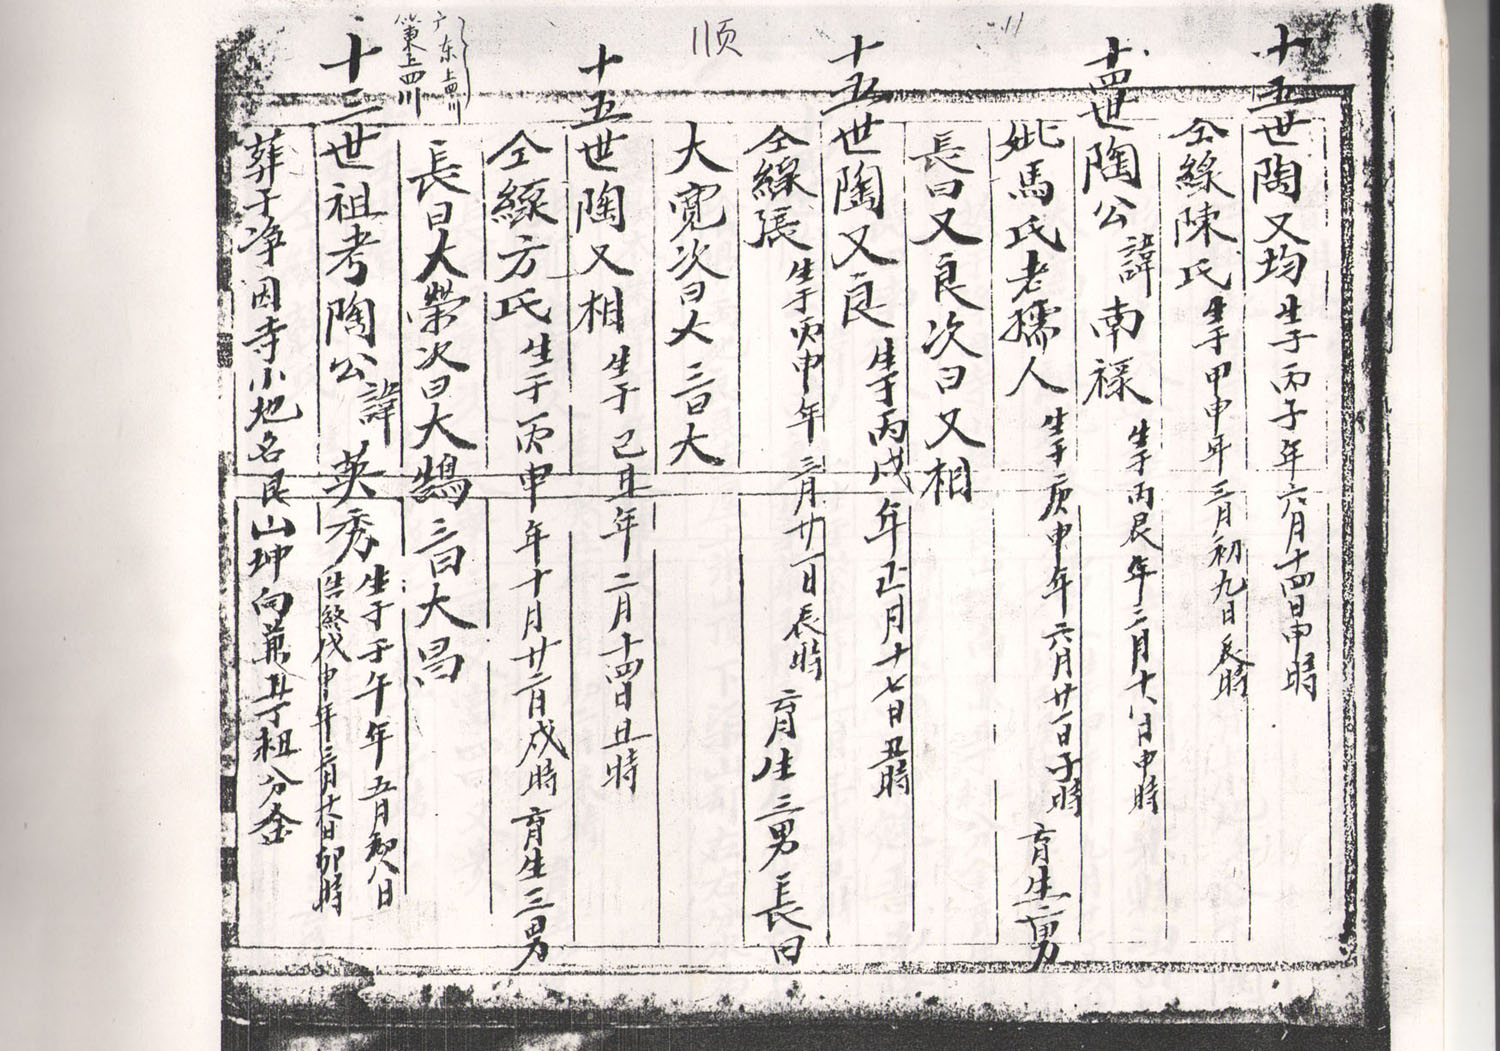 十五世陶又均生于丙子年六月十四日申時
仝緣陳氏生于甲申年三月初九日辰時
十四世陶公諱南禄生于丙辰年二月十八日申時
妣馬氏老孺人生于庚申年六月廿一日子時育生二男
長曰又良次曰又相
十五世陶又良生于丙戌年正月十七日丑時
仝緣張生于丙申年三月廿一日辰時育生三男長曰
大寬次曰大三曰大
十五世陶又相生于己丑年二月十四日丑時
仝緣方氏生于丙申年十月廿二日戌時育生三男
長曰大榮次曰大鵠三曰大昌
广东上四川
第上四川
十三世祖考陶公諱英秀生于壬午年五月初八日
告終戊申年三月廿日卯時
葬于净因寺小地名艮山坤向兼丑丁祖分金
順
11